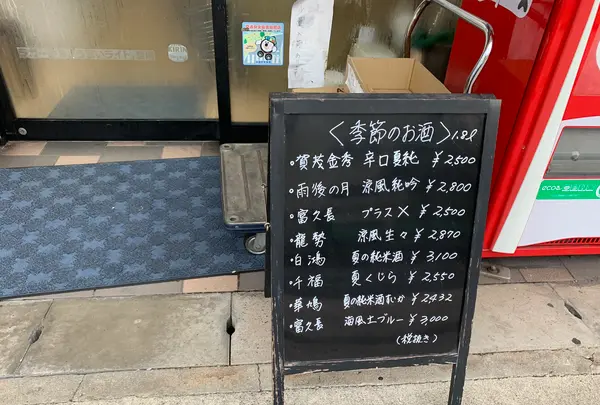 〈季節のお酒〉1.8ℓ
・賀茂金秀 辛口夏純 ¥2,500
・雨後の月 涼風純吟 ¥2,800
・富久長 プラスX ¥2,500
・龍勢 涼風生々 ¥2,870
・白鴻 夏の純米酒 ¥3,100
・千福 夏くじら ¥2,550
・華鳩 夏の純米酒むか ¥2,432
・富久長 海風土ブルー ¥3,000
(税抜き)